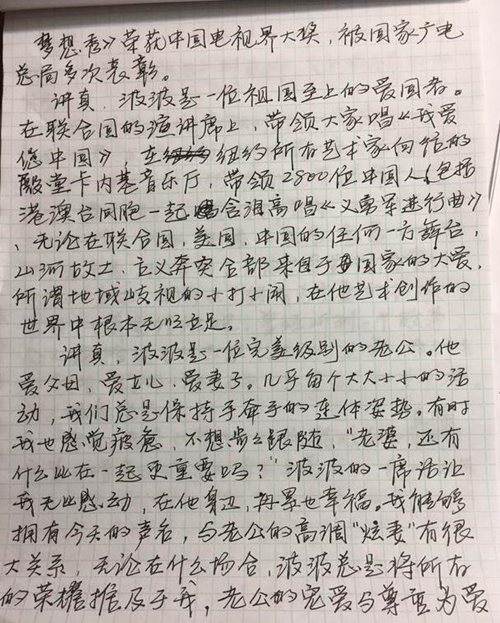 梦想秀》荣获中国电视界大奖，被国家广电
总局多次表彰。
讲真，波波是一位祖国至上的爱国者。
在联合国的演讲席上，带领大家唱《我爱
您中国》，在纽约所有艺术家向往的
殿堂卡内基音乐厅，带领2800位中国人（包括
港澳台同胞一起含泪高唱《义勇军进行曲》
，无论在联合国，美国，中国的任何一方舞台，
山河故土，立义奔突全部来自于国家的大爱，
所谓地域歧视的小打小闹，在他艺术创作的
世界中根本无从立足。
讲真，波波是一位完美级别的老公。他
爱父母，爱女儿，爱妻子。几乎每个大大小小的活
动，我们总是保持手牵手的连体姿势。有时
我也感觉疲惫，不想步步跟随，“老婆，还有
什么比在一起更重要吗？”波波的一席话让
我无比感动，在他身边，再累也幸福。我能够
拥有今天的声名，与老公的高调“炫妻”有很
大关系，无论在什么场合，波波总是将所有
的荣耀推及于我，老公的宠爱与尊重为爱